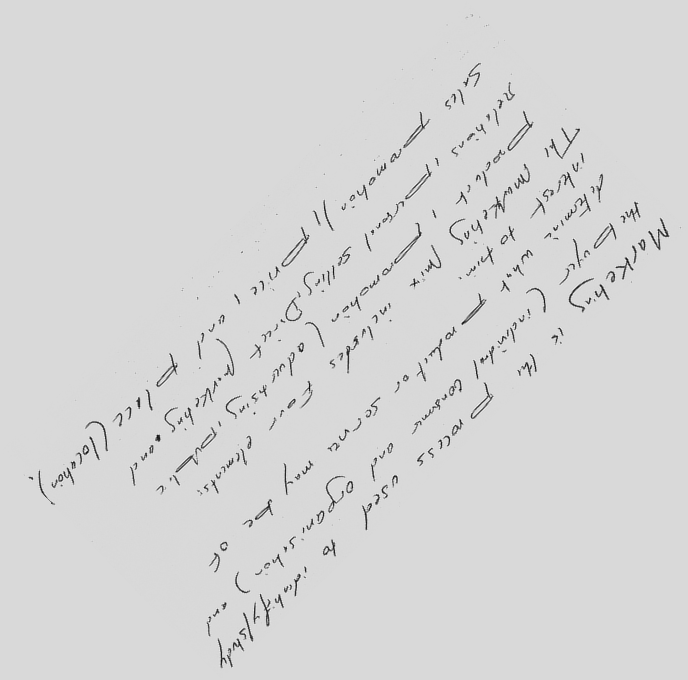 Marketing is the process used to identify/study
the buyer (individual consumer and organisation) and
determine what product or service may be of
interest to him.
The marketing mix includes four elements:
Product, promotion (advertising, public
Relations, personal selling, Direct marketing and
Sales promotion), price, and place (location).